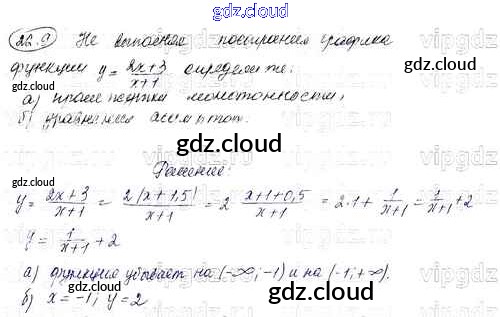 gdz.cloud
22.9 Не выполняя построения графика
функции y = 2x+3/x+1 определите:
а) промежутки монотонности;
б) уравнения асимптот.
gdz.cloud
Решение:
y = 2x+3/x+1 = 2(x+1,5)/x+1 = 2 x+1+0,5/x+1 = 2·1 + 1/x+1 = 1/x+1 + 2
y = 1/x+1 + 2
а) функция убывает на (-∞; -1) и на (-1; +∞).
б) x = -1; y = 2
gdz.cloud